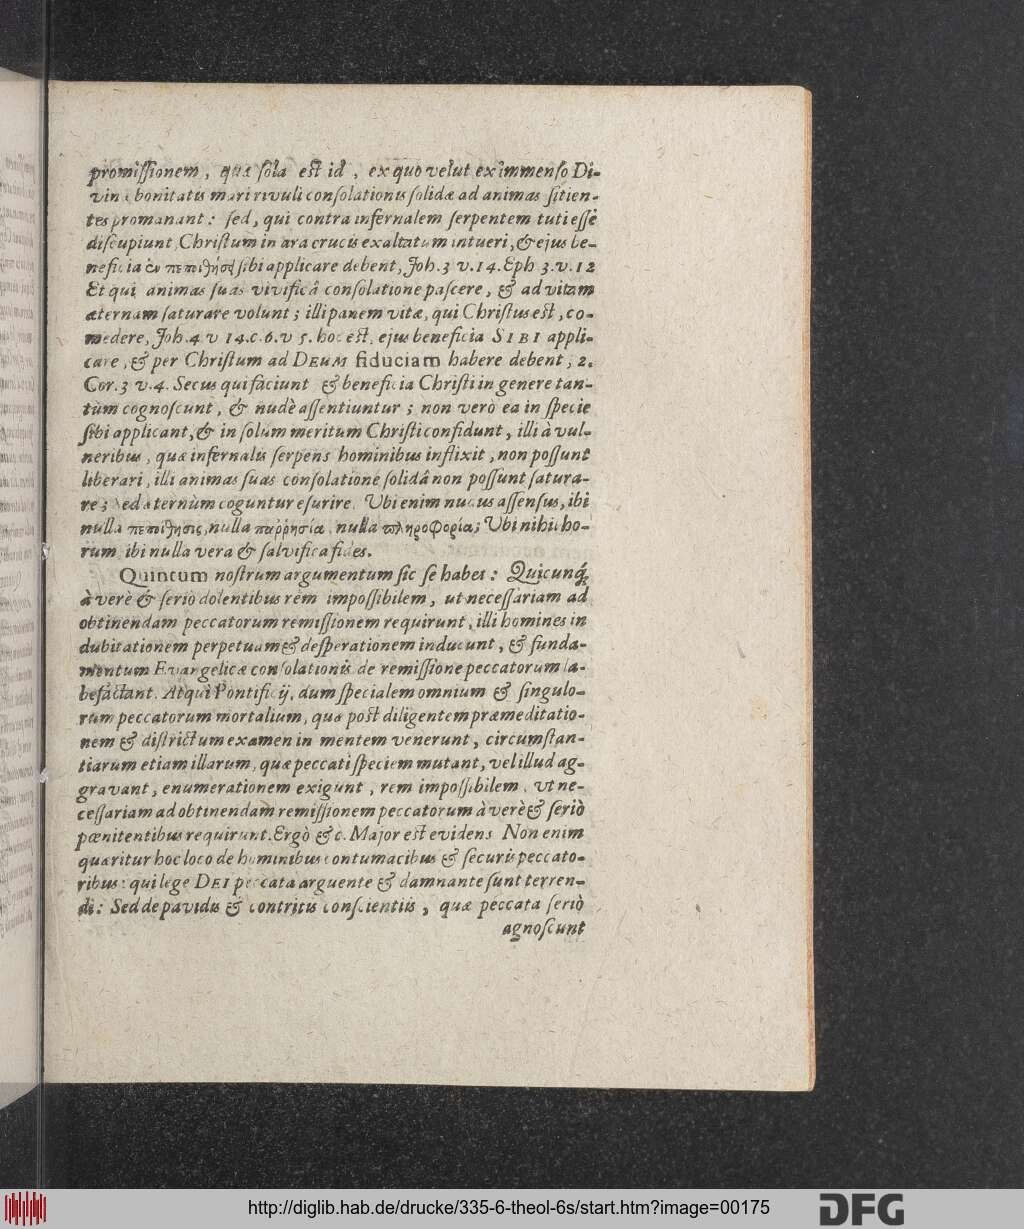 promiſſionem, quæ ſola eſt id, ex quo velut ex immenſo Di-
vinæ bonitatis mari rivuli conſolationis ſolidæ ad animas ſitien-
tes promanant: ſed, qui contra infernalem ſerpentem tuti eſſe
diſcupiunt, Chriſtum in ara crucis exaltatum intueri, & ejus be-
neficia ἐν πεποιθήσει ſibi applicare debent, Joh. 3 v. 14. Eph 3. v. 12
Et qui animas ſuas vivificâ conſolatione paſcere, & ad vitam
æternam ſaturare volunt; illi panem vitæ, qui Chriſtus eſt, co-
medere, Joh. 4. v 14. c. 6. v 5. hoc eſt, ejus beneficia SIBI appli-
care, & per Chriſtum ad DEUM fiduciam habere debent, 2.
Cor. 3 v. 4. Secus qui faciunt & beneficia Chriſti in genere tan-
tùm cognoſcunt, & nudè aſſentiuntur; non verò ea in ſpecie
ſibi applicant, & in ſolum meritum Chriſti confidunt, illi à vul-
neribus, quæ infernalis ſerpens hominibus inflixit, non poſſunt
liberari, illi animas ſuas conſolatione ſolidâ non poſſunt ſatura-
re; ſed æternùm coguntur eſurire. Ubi enim nudus aſſenſus, ibi
nulla πεποίθησις, nulla παῤῥησία, nulla πληροφορία; Ubi nihil ho-
rum ibi nulla vera & ſalvifica fides.
Quintum noſtrum argumentum ſic ſe habet: Quicunq́;
à verè & ſeriò dolentibus rem impoſſibilem, ut neceſſariam ad
obtinendam peccatorum remiſſionem requirunt, illi homines in
dubitationem perpetuam & deſperationem inducunt, & funda-
mentum Evangelicæ conſolationis de remiſſione peccatorum la-
befactant. Atqui Pontificij, dum ſpecialem omnium & ſingulo-
rum peccatorum mortalium, quæ poſt diligentem præmeditatio-
nem & diſtrictum examen in mentem venerunt, circumſtan-
tiarum etiam illarum, quæ peccati ſpeciem mutant, vel illud ag-
gravant, enumerationem exigunt, rem impoſſibilem, ut ne-
ceſſariam ad obtinendam remiſſionem peccatorum à verè & ſeriò
pœnitentibus requirunt. Ergò &c. Major eſt evidens Non enim
quæritur hoc loco de hominibus contumacibus & ſecuris peccato-
ribus: qui lege DEI peccata arguente & damnante ſunt terren-
di: Sed de pavidis & contritis conſcientiis, quæ peccata ſeriò
agnoſcunt
http://diglib.hab.de/drucke/335-6-theol-6s/start.htm?image=00175
DFG